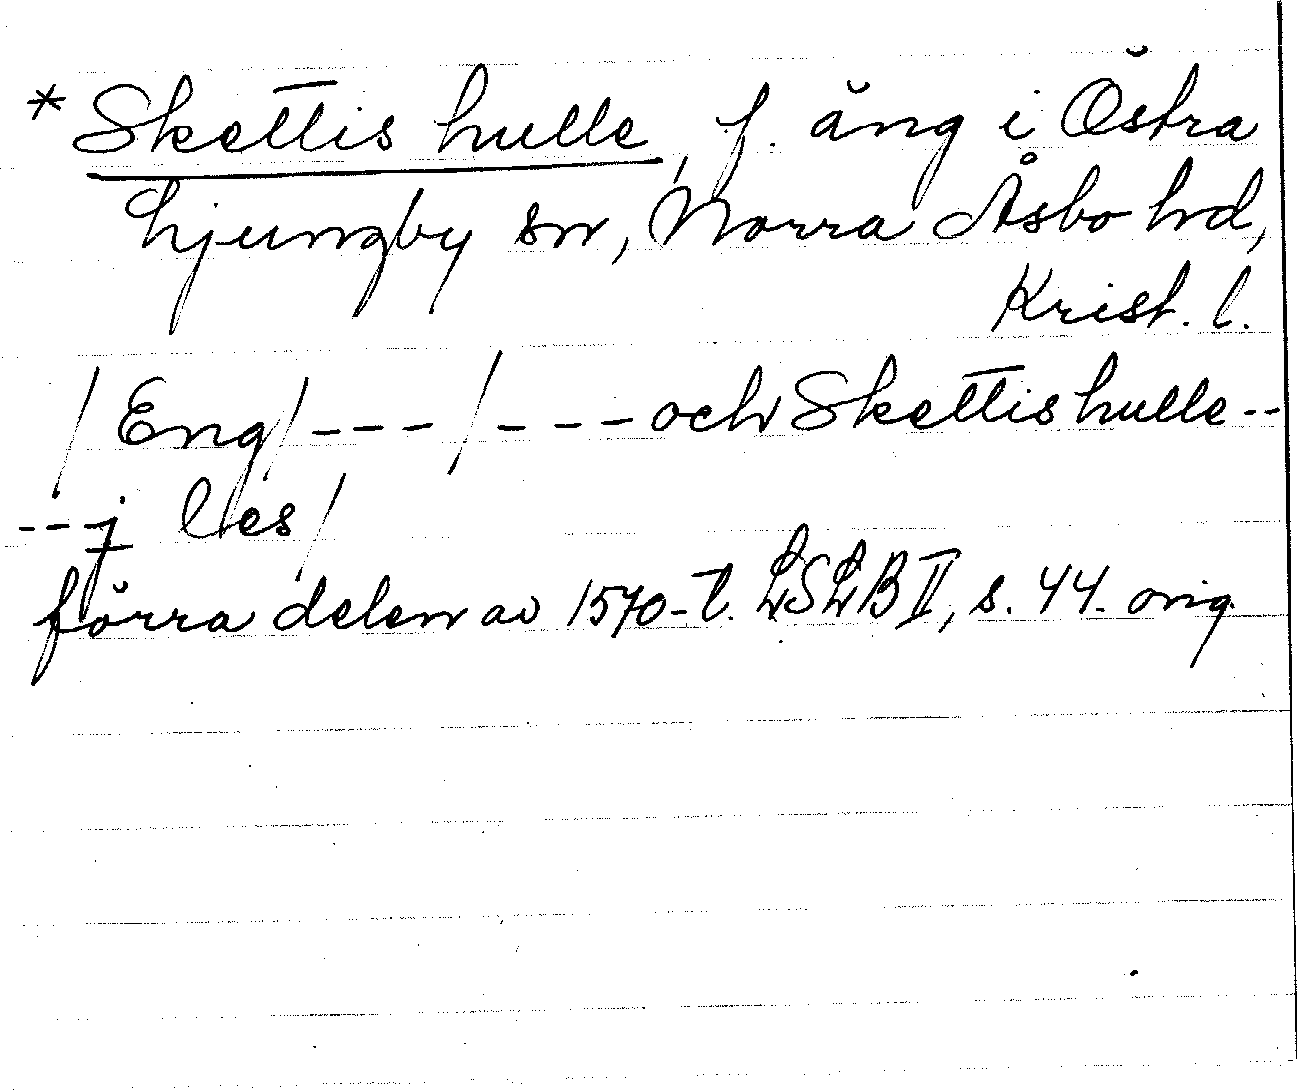 * Skettis hulle, f. äng i Östra
Ljungby sn, Norra Åsbo hd,
Krist. l.
/ Eng/ --- / --- och Skettis hulle --
--- j les/
förra delen av 1570-t. LSLB II, s. 44. orig